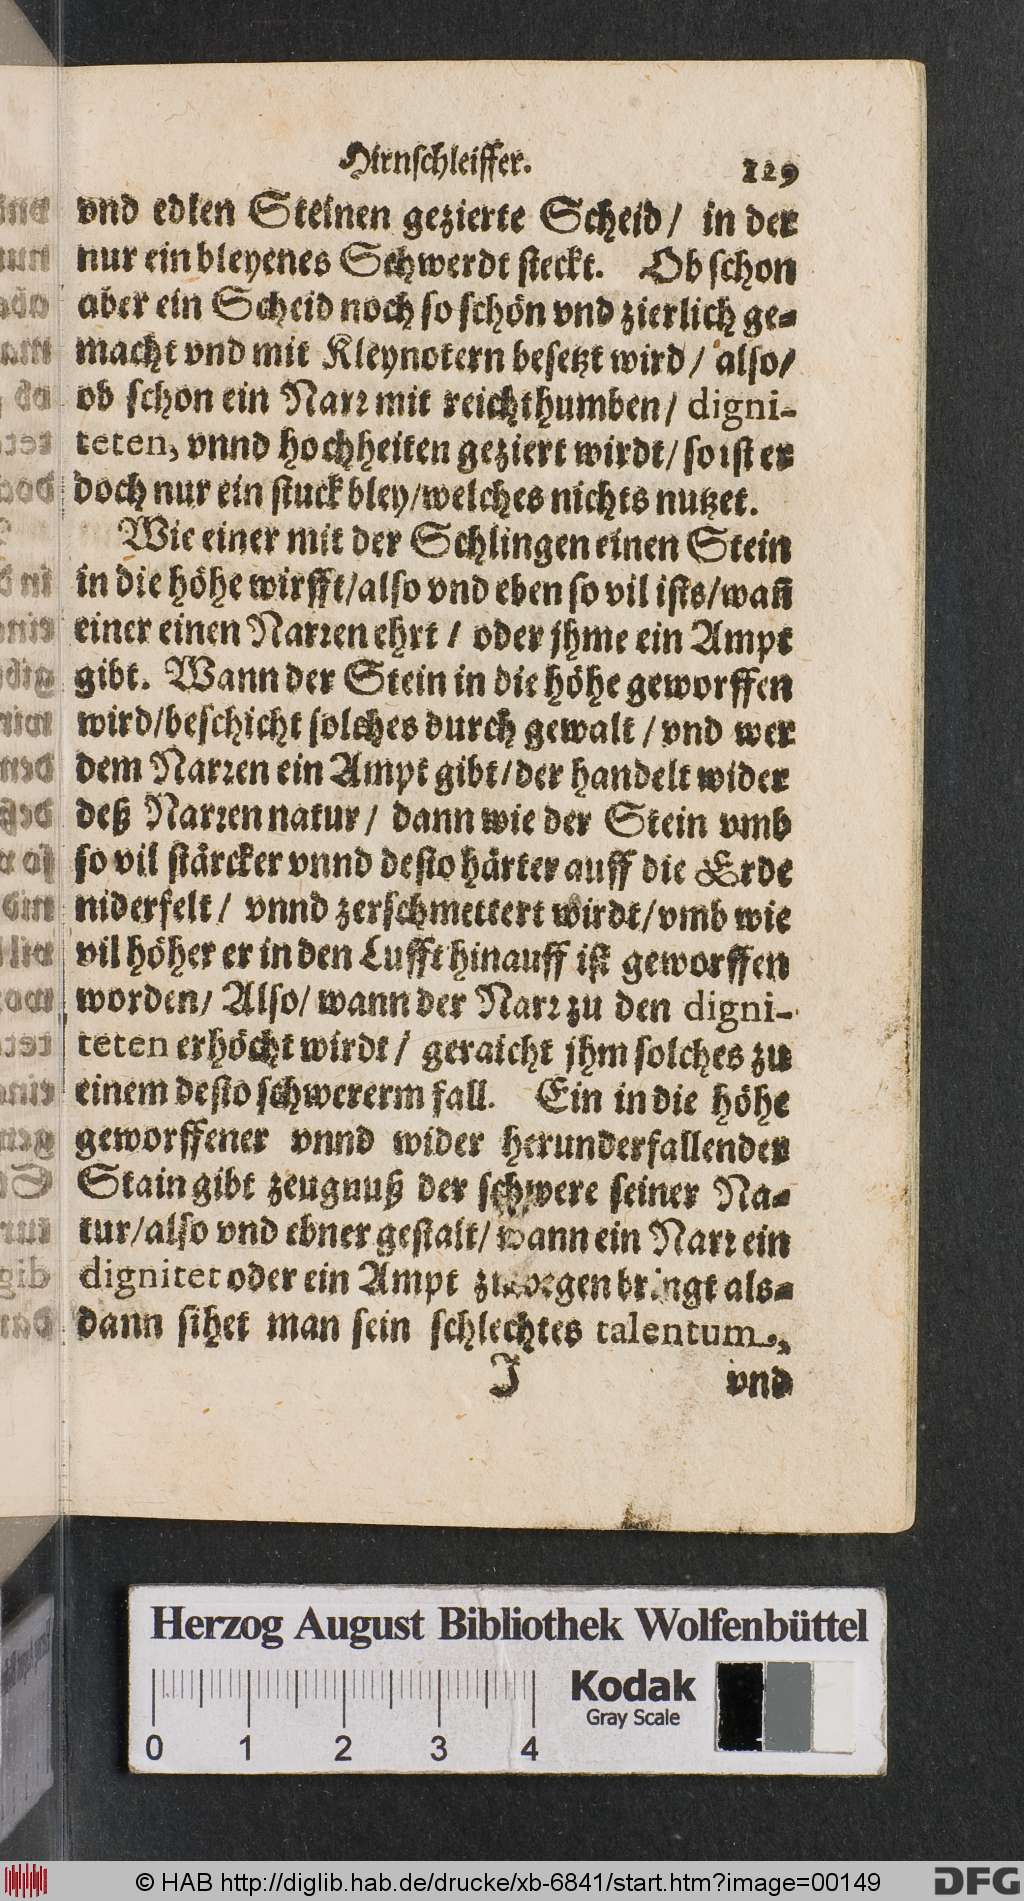 Hirnschleiffer. 129
vnd edlen Steinen gezierte Scheid/ in der
nur ein bleyenes Schwerdt steckt. Ob schon
aber ein Scheid noch so schön vnd zierlich ge-
macht vnd mit Kleynotern besetzt wird/ also/
ob schon ein Narr mit reichthumben/ digni-
teten, vnnd hochheiten geziert wirdt/ so ist er
doch nur ein stuck bley/welches nichts nutzet.
Wie einer mit der Schlingen einen Stein
in die höhe wirfft/also vnd eben so vil ists/wañ
einer einen Narren ehrt / oder jhme ein Ampt
gibt. Wann der Stein in die höhe geworffen
wird/beschicht solches durch gewalt / vnd wer
dem Narren ein Ampt gibt/der handelt wider
deß Narren natur/ dann wie der Stein vmb
so vil stärcker vnnd desto härter auff die Erde
niderfelt/ vnnd zerschmettert wirdt/vmb wie
vil höher er in den Lufft hinauff ist geworffen
worden/ Also/ wann der Narr zu den digni-
teten erhöcht wirdt/ geraicht jhm solches zu
einem desto schwererm fall. Ein in die höhe
geworffener vnnd wider herunderfallender
Stain gibt zeugnuß der schwere seiner Na-
tur/also vnd ebner gestalt/ wann ein Narr ein
dignitet oder ein Ampt zuwegen bringt als-
dann sihet man sein schlechtes talentum,
J vnd
Herzog August Bibliothek Wolfenbüttel
Kodak
Gray Scale
0 1 2 3 4
© HAB http://diglib.hab.de/drucke/xb-6841/start.htm?image=00149
DFG